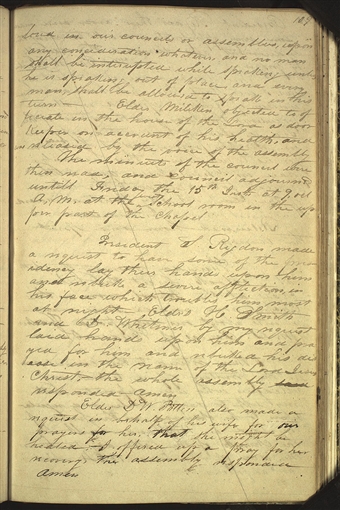 107
loud in our councils or assemblies, upon
any consideration whatever, and no man
shall be interrupted while speaking unless
he is speaking out of place and every
man shall be allowed to speak in his
turn — Elder Miliken objected to of
ficiate in the house of the Lord as door
keeper on account of his health, and
released by the voice of the assembly
The minuits of the council were
then read, and council adjourned
untill Friday the 15th Inst. at 9, ocl
A, M. at the School room in the up
per part of the Chapel
President S Rigdon made
a request to have some of the presi
dency lay their hands upon him
and rebuke a severe affliction, in
his face which troubles him most
at night, Elders H Smith
and D. Whitmer by my request
laid hands upon him and pra
yed for him and rebuked his di
sease in the name of the Lord Jesus
Christ. — the whole assembly said
responded Amen
Elder D. W. Patten also made a
request in behalf of his wife for our
prayers for her, that she might be
healed. — I offered up a pray for her
recovery, the assembly responded
Amen